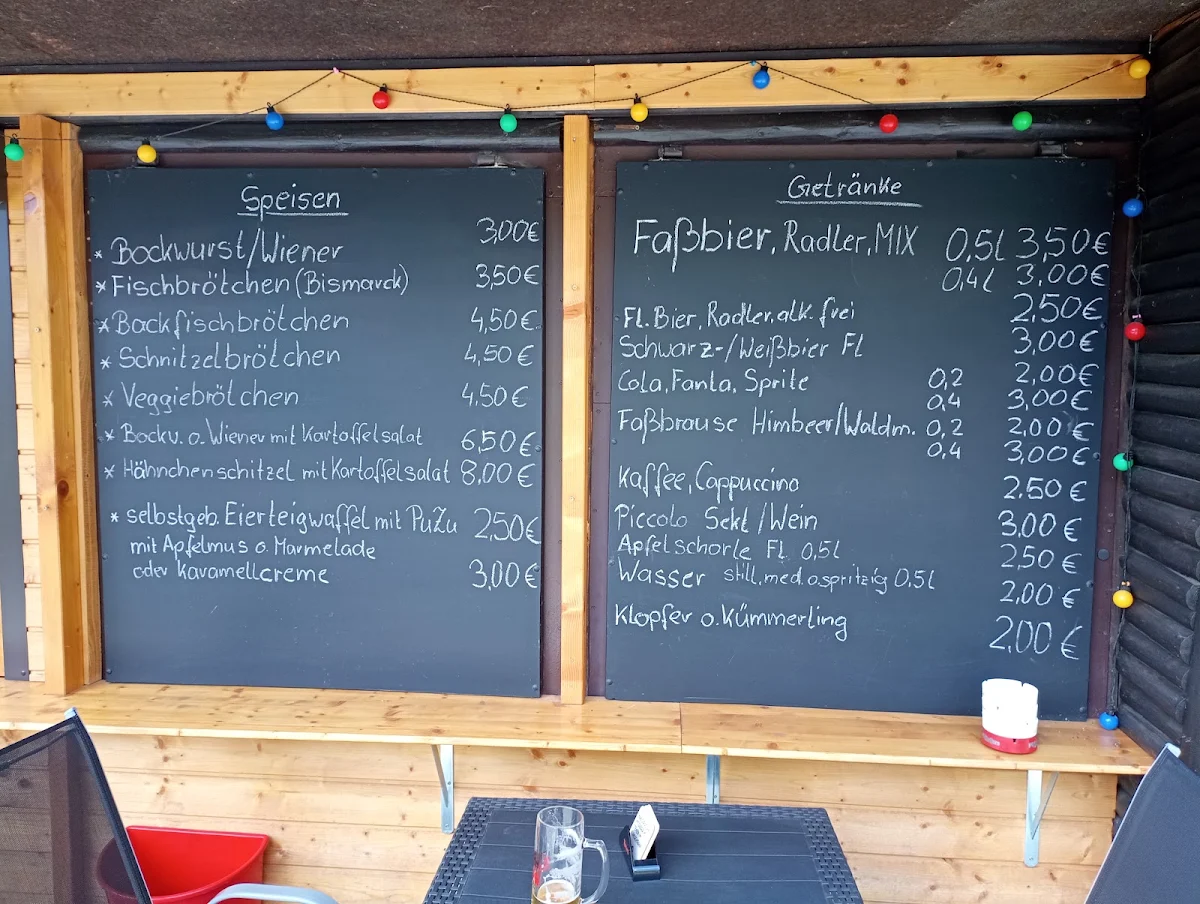 Speisen
* Bockwurst/Wiener 3,00€
* Fischbrötchen (Bismarck) 3,50€
* Backfischbrötchen 4,50€
* Schnitzelbrötchen 4,50€
* Veggiebrötchen 4,50€
* Bockw. o. Wiener mit Kartoffelsalat 6,50€
* Hähnchenschitzel mit Kartoffelsalat 8,00€
* selbstgeb. Eierteigwaffel mit PuZu 2,50€
mit Apfelmus o. Marmelade
oder Karamellcreme 3,00€
Getränke
Faßbier, Radler, MIX 0,5l 3,50€
0,4l 3,00€
Fl. Bier, Radler, alk. frei 2,50€
Schwarz-/Weißbier Fl 3,00€
Cola, Fanta, Sprite 0,2 2,00€
0,4 3,00€
Faßbrause Himbeer/Waldm. 0,2 2,00€
0,4 3,00€
Kaffee, Cappuccino 2.50€
Piccolo Sekt/Wein 3,00€
Apfelschorle Fl. 0,5l 2,50€
Wasser still, med. o. spritzig 0,5l 2,00€
Klopfer o. Kümmerling 2,00€